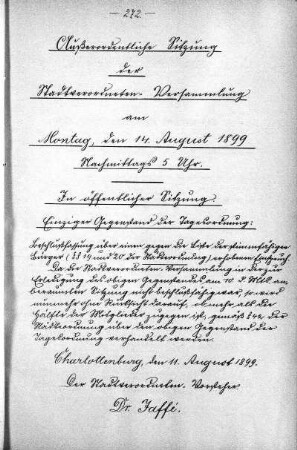 - 272 -
Außerordentliche Sitzung
der
Stadtverordneten-Versammlung
am
Montag, den 14. August 1899
Nachmittags 5 Uhr.
In öffentlicher Sitzung.
Einziger Gegenstand der Tagesordnung:
Beschlußfassung über einen gegen die Liste der stimmfähigen
Bürger (§§ 19 und 20 der Städteordnung) erhobenen Einspruch.
Da die Stadtverordneten-Versammlung in der zur
Erledigung des obigen Gegenstandes am 10. d. Mts. an-
beraumten Sitzung nicht beschlußfähig war, so wird
nunmehr ohne Rücksicht darauf, ob mehr als die
Hälfte der Mitglieder zugegen ist, gemäß der
Städteordnung über den obigen Gegenstand der
Tagesordnung verhandelt werden.
Charlottenburg, den 11. August 1899.
Der Stadtverordneten-Vorsteher
Dr. Jaffé.